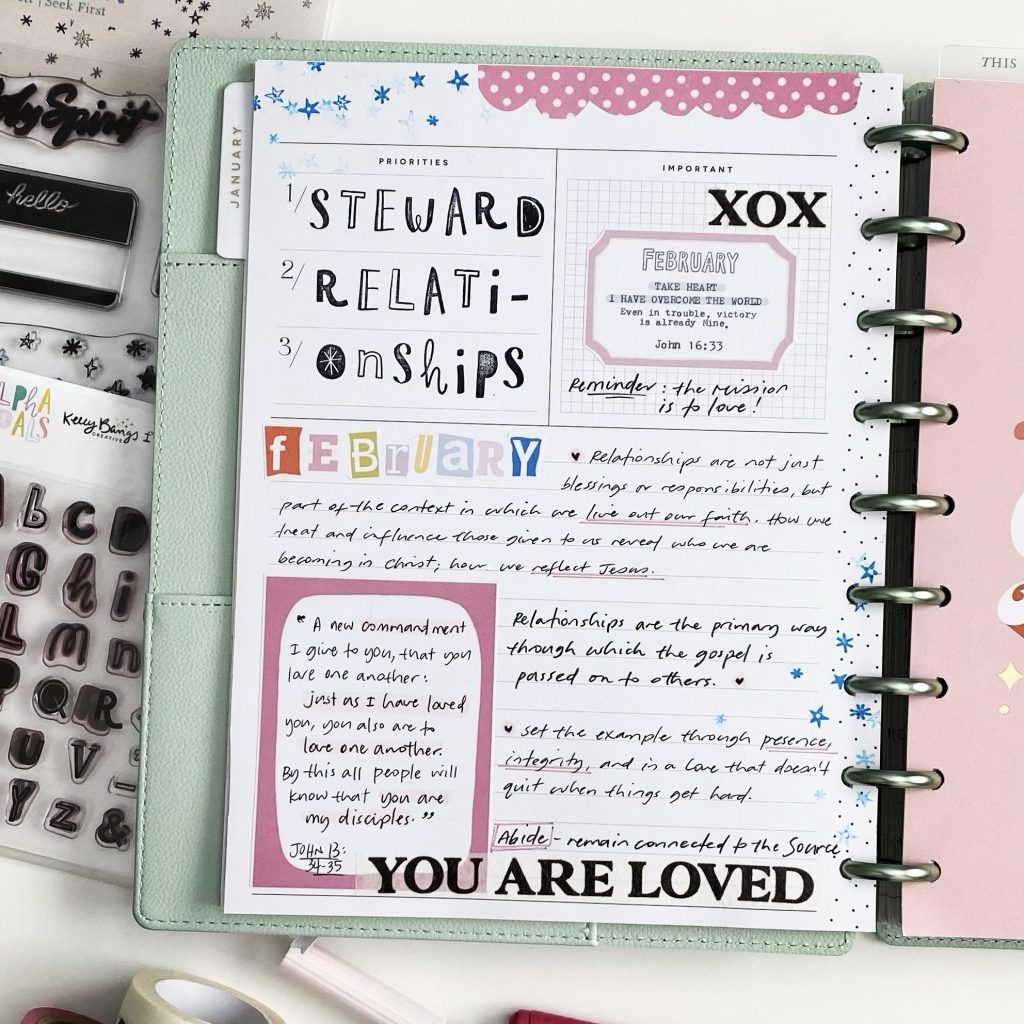 Seek First
THIS
JANUARY
Spirit
hello
ALPHA
Kelly Bangs
CREATIVE
PRIORITIES
1/ STEWARD
2/ RELATi-
3/ OnShiPS
IMPORTANT
XOX
FEBRUARY
TAKE HEART
I HAVE OVERCOME THE WORLD
Even in trouble, victory
is already Mine.
John 16:33
Reminder: the mission
is to love!
fEBrUaRY
♥ Relationships are not just
blessings or responsibilities, but
part of the context in which we live out our faith. How we
treat and influence those given to us reveal who we are
becoming in Christ; how we reflect Jesus.
“ A new commandment
I give to you, that you
love one another:
just as I have loved
you, you also are to
love one another.
By this all people will
know that you are
my disciples. ”
JOHN 13:
34-35
Relationships are the primary way
through which the gospel is
passed on to others. ♥
♥ set the example through presence,
integrity, and in a love that doesn't
quit when things get hard.
Abide - remain connected to the Source.
YOU ARE LOVED
b C D
G h i
L m n
Q R
U V
Y Z &